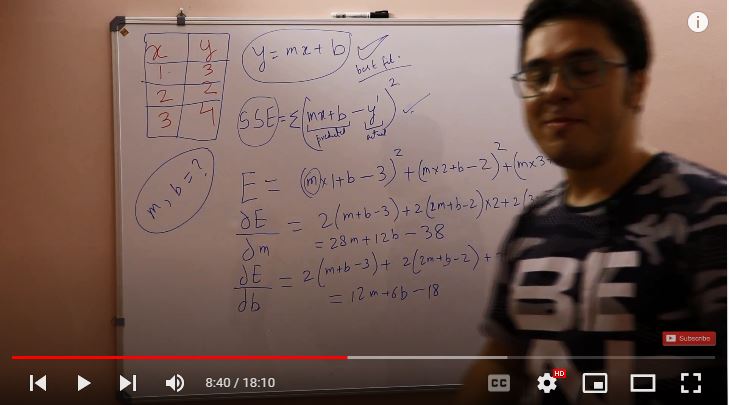 x y
1 3
2 2
3 4
y = mx + b
best fit.
SSE = Σ(mx+b - y')²
predicted actual
m, b = ?
E = (m×1+b-3)² + (m×2+b-2)² + (m×3+
∂E/∂m = 2(m+b-3) + 2(2m+b-2)×2 + 2(3
= 28m+12b-38
∂E/∂b = 2(m+b-3) + 2(2m+b-2) +
= 12m+6b-18
BE
Subscribe
8:40 / 18:10
CC
HD